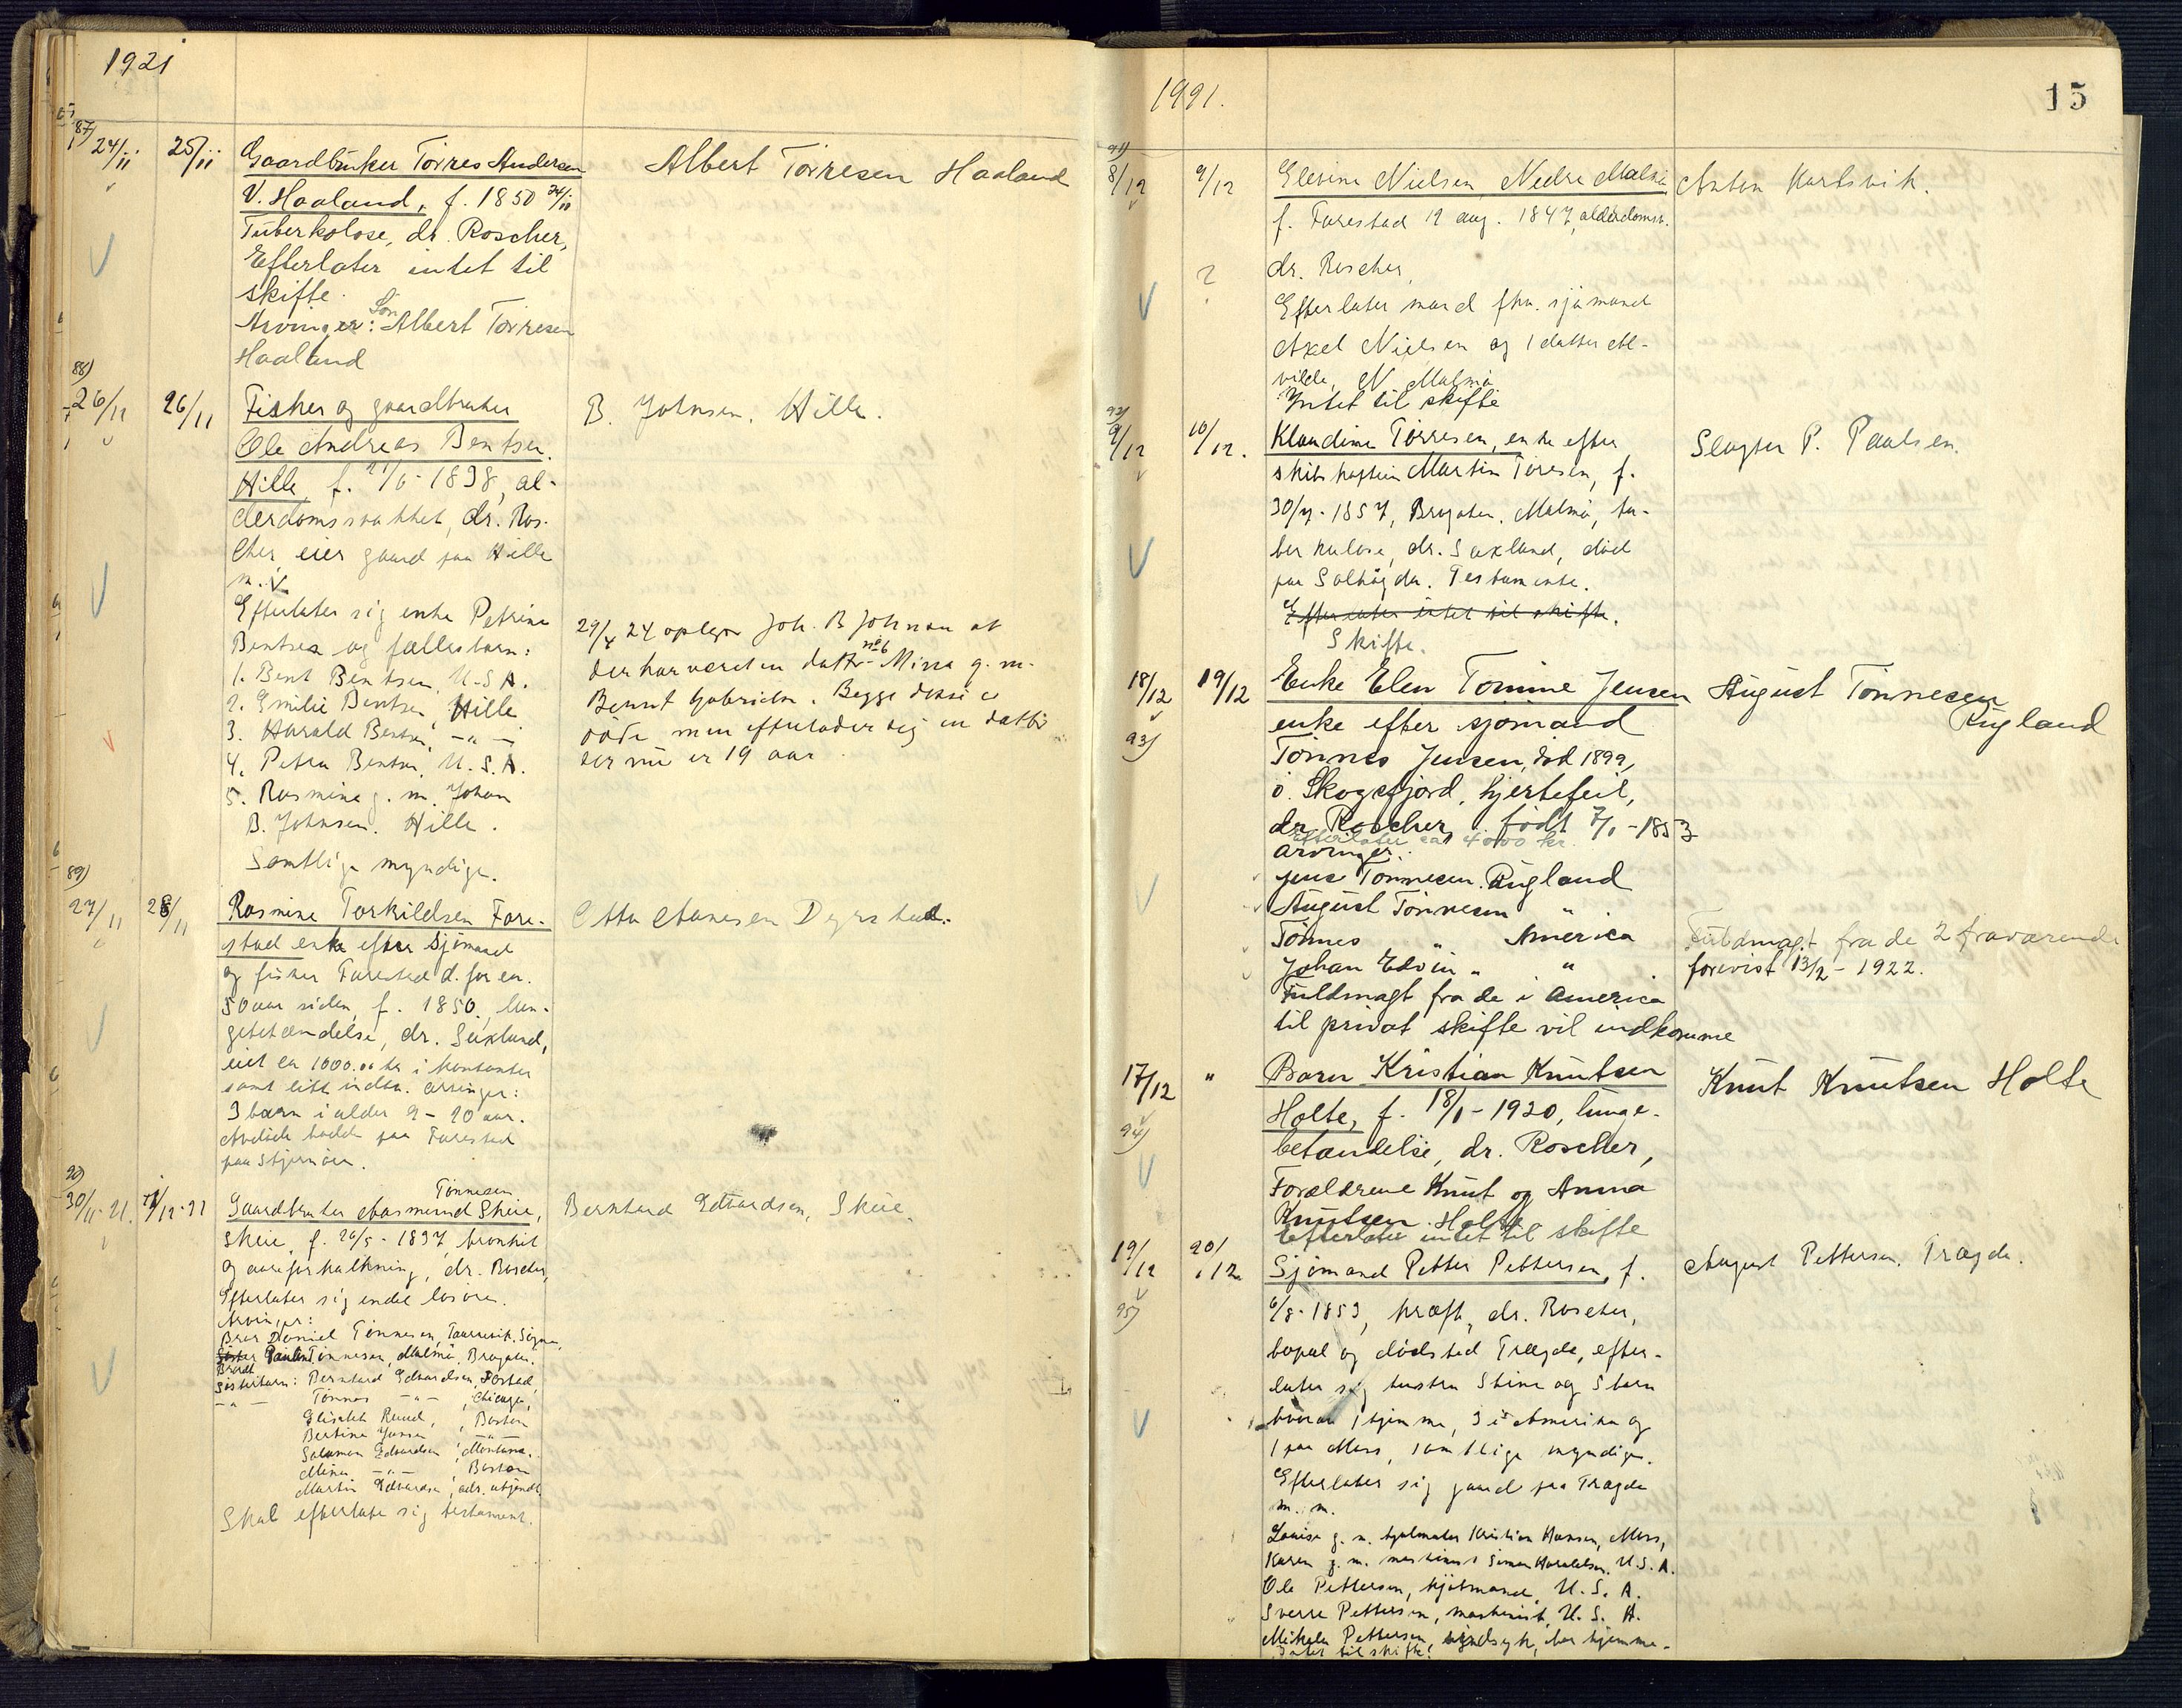 1921
87)
24/11 25/11 Gaardbruker Torres Andersen Albert Torresen Haaland
V. Haaland, f. 1850 24/10
Tuberkolose, dr. Roscher,
Efterlater intet til
skifte.
Arvinger: Søn Albert Torresen
Haaland
88)
26/11 26/11 Fisker og gaardbruker B. Johnsen. Hille.
Ole Andreas Bentsen.
Hille, f. 21/6-1838, al-
derdomssvakhet, dr. Ros-
cher, eier gaard paa Hille
m. v.
Efterlater sig enke Petrine
Bentsen og fællesbarn:
1. Bent Bentsen, U.S.A.
2. Emilie Bentsen, Hille
3. Harald Bentsen, -"-
4. Petra Bentsen, U.S.A.
5. Rasmine g. m. Johan
B. Johnsen. Hille.
Samtlige myndige.
29/4 24 oplyser Joh. B Johnsen at
der har været en datter no 6 Mina g. m.
Bernt Gabrielsen. Begge disse er
døde men efterlader sig en datter
der nu er 19 aar.
89)
27/11 28/11 Rasmine Torkildsen Fare- Otto Aanesen Dyrstad.
stad enke efter sjømand
og fisker Farestad d. for en.
50 aar siden, f. 1850, lun-
gebetændelse, dr. Saxlund,
eiet ca 1000.00 kr i kontanter
samt litt indbo. Arvinger:
3 barn i alder 9-20 aar.
Avdøde bodde paa Farestad
paa Stjernøen.
90)
30/11-21. 1/12-21 Gaardbruker Aasmund Tønnesen Skeie, Bernhard Edvardsen, Skeie.
Skeie, f. 26/5-1837, bronkit
og aareforkalkning, dr. Roscher,
Efterlater sig endel løsøre.
Arvinger:
Bror Daniel Tønnesen, Søgne,
Tønnesen, Malmø, Brogaten.
Søsterbarn: Bernhard Edvardsen,
-"- Tønnes -"-, Chicago,
Elisabet Ruud, Boston
Bertine Jansen -"-
Salomon Edvardsen, Montana.
Mina -"-, Boston
Martin Edvardsen, adr. ukjendt.
Skal efterlate sig testament.
1921.
15
91)
8/12 9/12 Elevine Nielsen, Nedre Malmø Anton Karlsvik.
f. Farestad 12 aug. 1847, alderdomss.
? dr. Roscher,
Efterlater mand fhv. sjømand
Axel Nielsen og 1 datter Al-
vilde, N. Malmø
Intet til skifte
92)
9/12 10/12. Klaudine Torresen, enke efter Slagter P. Paulsen.
skibskaptein Martin Toresen, f.
30/4-1857, Brogaten. Malmø, tu-
berkulose, dr. Saxlund, død
paa Solhøgda. Testamente.
Efterlater intet til skifte.
Skifte.
18/12 19/12 Enke Elen Tomine Jensen August Tønnesen
Rugland
93)
enke efter sjømand
Tønnes Jensen, død 1899,
ø. Skogsfjord, hjertefeil,
dr. Roscher, født 7/1-1853
Efterlater ca 4000 kr.
Arvinger:
Jens Tønnesen. Rugland
August Tønnesen "
Tønnes " America
Johan Edvin " "
Fuldmagt fra de 2 fraværende
forevist 13/2-1922.
Fuldmagt fra de i America
til privat skifte vil indkomme
17/12 " Barn Kristian Knutsen Knut Knutsen Holte
94)
Holte, f. 18/1-1920, lunge-
betændelse, dr. Roscher,
Forældrene Knut og Anna
Knutsen. Holte
Efterlater intet til skifte
19/12 20/12 Sjømand Petter Pettersen, f. August Pettersen. Trægde.
95)
6/8-1853, kræft, dr. Roscher,
bopæl og dødsted Trægde, efter-
later sig hustru Stine og 5 barn
hvorav 1 hjemme, 3 i Amerika og
1 paa Moss, samtlige myndige.
Efterlater sig gaard paa Trægde
m. m.
Louise g. m. Kristian Hansen, Moss,
Karen g. m. maskinist Simon Haraldsen, U.S.A.
Ole Pettersen, U.S.A.
Sverre Pettersen, maskinist, U.S.A.
Mikale Pettersen, sindsyk, bor hjemme-
Intet til skifte!